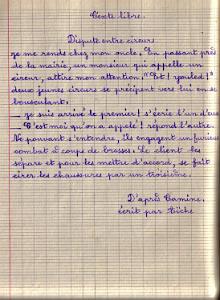 Texte libre.
Dispute entre cireurs
Je me rends chez mon oncle. En passant près
de la mairie, un monsieur qui appelle un
cireur, attire mon attention. "Pst ! youled !"
deux jeunes cireurs se précipitent vers lui en se
bousculant.
_ je suis arrivé le premier ! s'écrie l'un d'eux
_ C'est moi qu'on a appelé ! répond l'autre.
Ne pouvant s'entendre, ils engagent un furieux
combat à coups de brosses. Le client les
sépare et pour les mettre d'accord, se fait
cirer les chaussures par un troisième.
D'après Camine.
écrit par